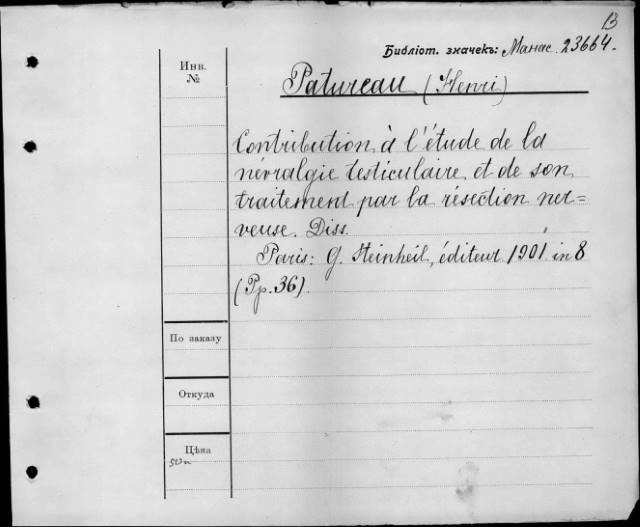 B
Библіот. значекъ: Манас. 23664.
Инв.
№
Patureau (Henri)
Contribution à l'étude de la
névralgie testiculaire et de son
traitement par la résection ner=
veuse. Diss.
Paris: G. Steinheil, éditeur 1901 in 8
(Pp. 36).
По заказу
Откуда
Цѣна